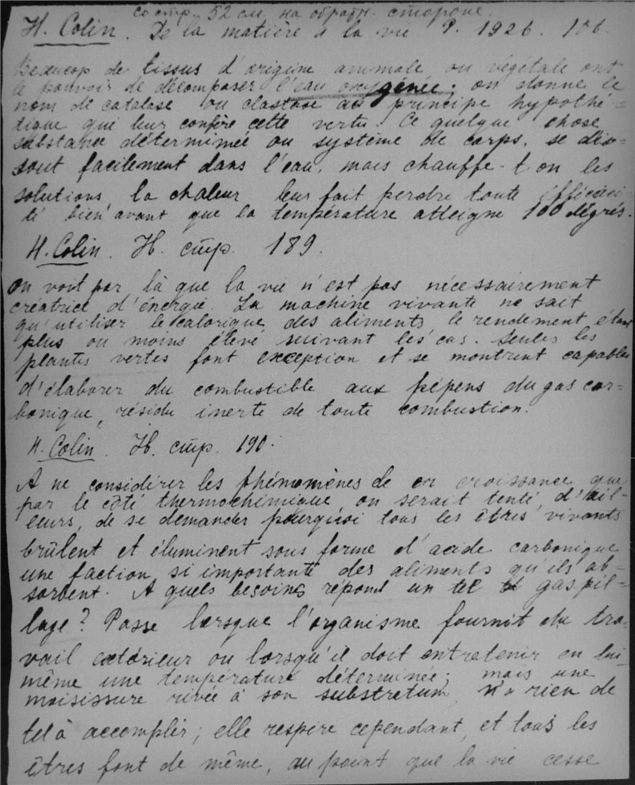 со стр. 52 см. на обратн. стороне.
H. Colin. De la matière à la vie P. 1926. 106.
Beaucoup de tissus d'origine animale ou végétale ont
le pouvoir de décomposer l'eau oxygenée; on donne le
nom de catalase ou clastase au principe hypothé-
tique qui leur confère cette vertu! Ce quelque chose
substance déterminée ou système de corps, se dis-
sout facilement dans l'eau, mais chauffe-t-on les
solutions, la chaleur leur fait perdre toute efficaci-
té bien avant que la température atteigne 100 degrés.
H. Colin. Ib. стр. 189.
On voit par là que la vie n'est pas nécessairement
créatrice d'énergie. La machine vivante ne sait
qu'utiliser le calorique des aliments, le rendement étant
plus ou moins élevé suivant les cas. Seules les
plantes vertes font exception et se montrent capables
d'élaborer du combustible aux dépens du gas car-
bonique, résidu inerte de toute combustion.
H. Colin. Ib. стр. 190.
A ne considérer les phénomènes de croissance que
par le côté thermochimique on serait tenté d'ail-
leurs, de se demander pourquoi tous les êtres vivants
brûlent et éliminent sous forme d'acide carbonique
une faction si importante des aliments qu'ils ab-
sorbent. A quels besoins répond un tel gaspil-
lage? Passe lorsque l'organisme fournit du tra-
vail extérieur ou lorsqu'il doit entretenir en lui-
même une température déterminée; mais une
moisissure rivée à son substratum n'a rien de
tel à accomplir; elle respire cependant, et tous les
êtres font de même, au point que la vie cesse